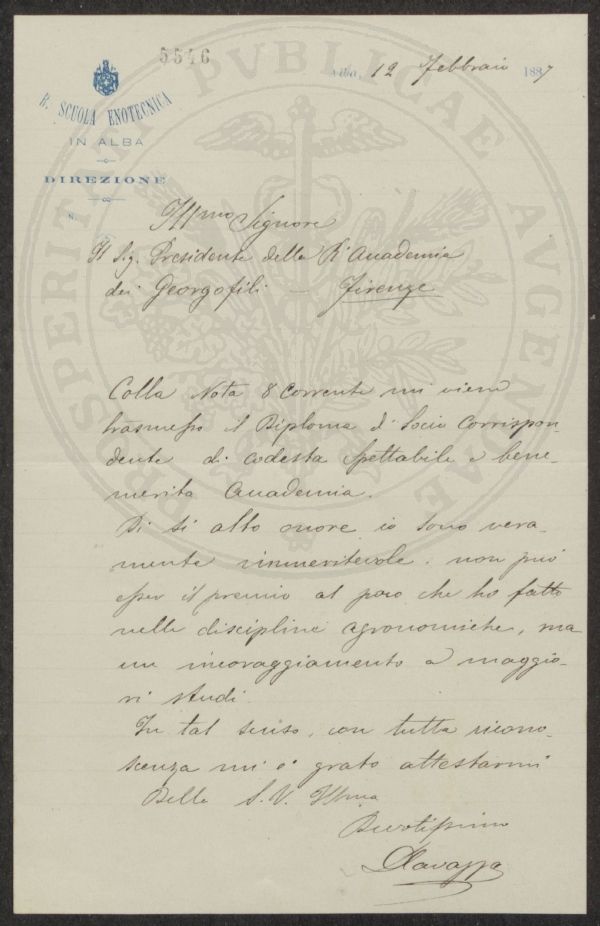 5546
Alba, 12 Febbraio 1887
R. SCUOLA ENOTECNICA
IN ALBA
DIREZIONE
PROSPERITATI PVBLICAE AVGENDAE
Ill.mo Signore
Il Sig. Presidente della R. Accademia
dei Georgofili – Firenze
Colla Nota 8 corrente mi viene
trasmesso il Diploma di Socio Corrispon-
dente di codesta spettabile e bene-
merita Accademia.
Di sì alto onore io sono vera-
mente immeritevole: non può
esser il premio al poco che ho fatto
nelle discipline agronomiche, ma
un incoraggiamento a maggio-
ri studi.
In tal senso, con tutta ricono-
scenza mi è grato attestarmi
Della S. V. Ill.ma
Devotissimo
DCavazza